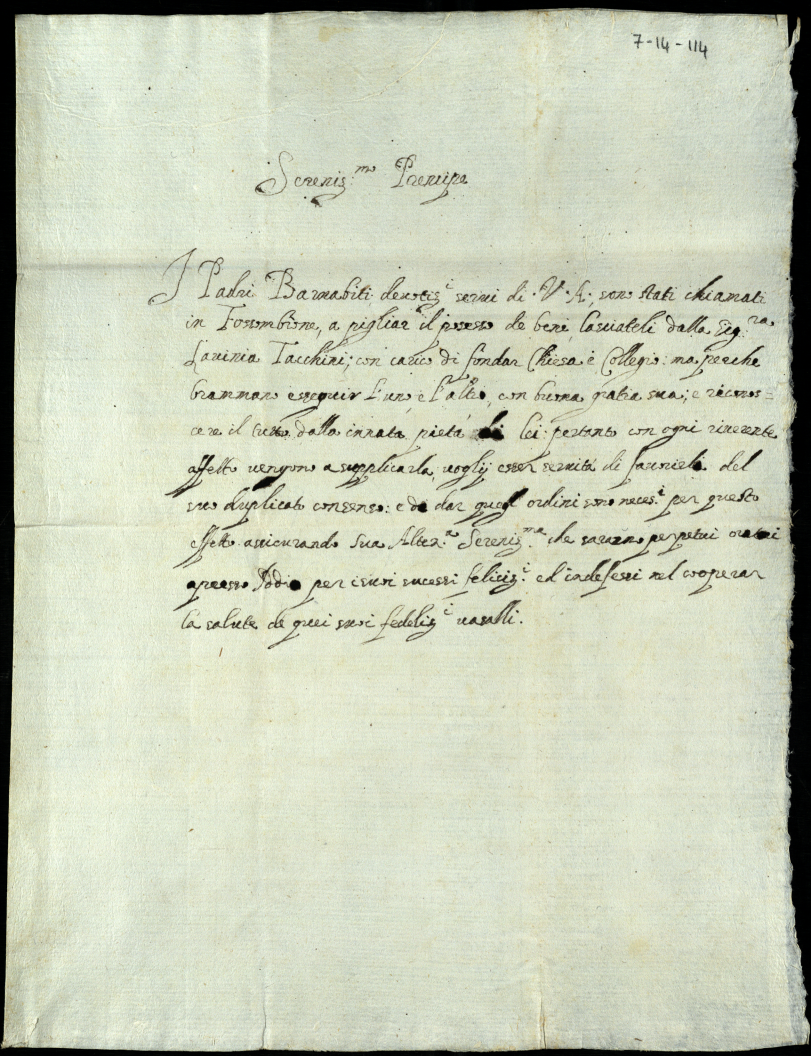 7-14-114
Sereniss.mo Prencipe
I Padri Barnabiti devotiss.i servi di V. A. sono stati chiamati
in Fossombrone, a pigliar il posesso de beni, lasciateli dalla Sig.ra
Lavinia Tacchini; con carico di fondar Chiesa è Collegio: ma perche
brammano esseguir l'uno è l'altro, con buona gratia sua; e riconos=
cere il tutto dalla innata pietà di lei: pertanto con ogni riverente
affetto vengono a supplicarla, voglij esser servità di favorirli del
suo duplicato consenso: e di dar quegl' ordini sono neces.i per questo
effetto assicurando sua Altez.a Sereniss.ma che saranno perpetui oratori
apresso Iddio per i suoi sucessi feliciss.i ed indefessi nel cooperar
la salute de quei suoi fedeliss.i vasalli.